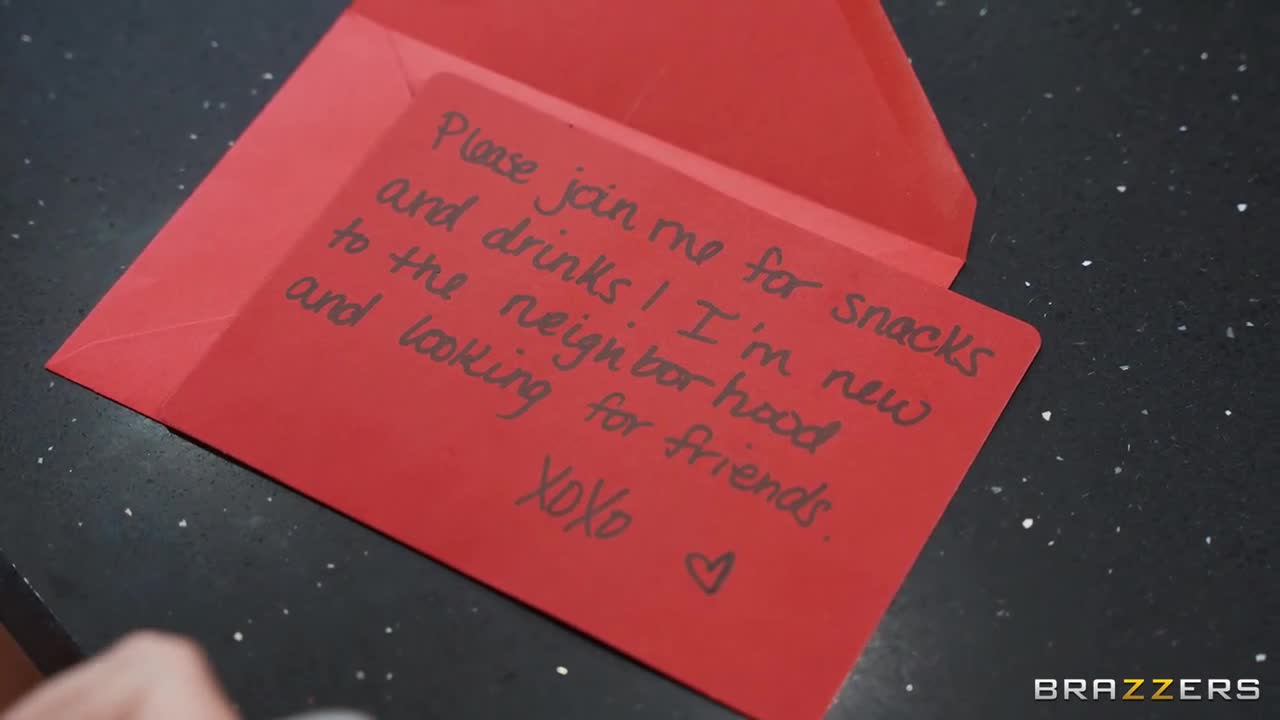 Please join me for snacks
and drinks! I'm new
to the neighborhood
and looking for friends.
XOXO ♡
BRAZZERS